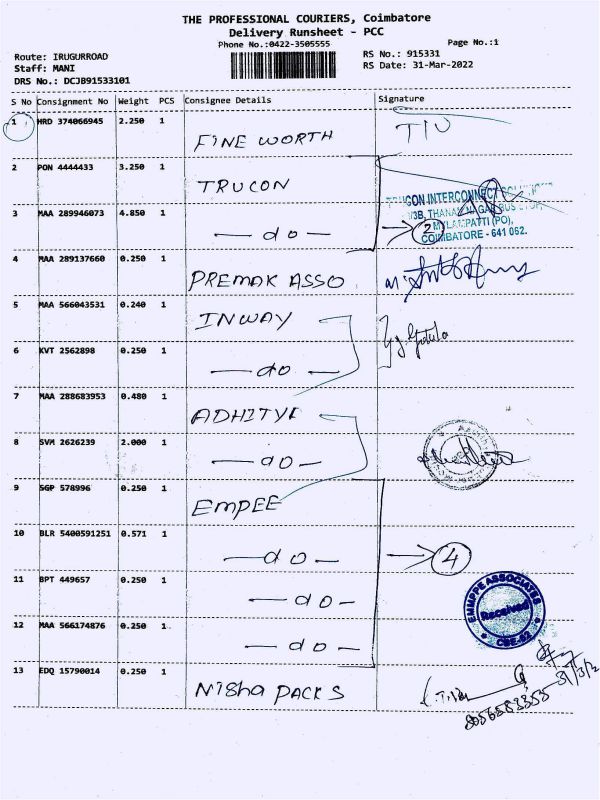 THE PROFESSIONAL COURIERS, Coimbatore
Delivery Runsheet - PCC
Phone No.:0422-3505555
Page No.:1
Route: IRUGURROAD
Staff: MANI
DRS No.: DCJB91533101
RS No.: 915331
RS Date: 31-Mar-2022
S No Consignment No Weight PCS Consignee Details Signature
1 HRD 374066945 2.250 1
FINE WORTH
2 PON 4444433 3.250 1
TRUCON
INTERCONNECT
3 MAA 289946073 4.850 1
— do — 2
MYLAMPATTI (PO),
COIMBATORE - 641 062.
4 MAA 289137660 0.250 1
PREMAK ASSO
5 MAA 566043531 0.240 1
INWAY
6 KVT 2562898 0.250 1
— do —
7 MAA 288683953 0.480 1
ADHITYI
8 SVM 2626239 2.000 1
— do —
9 SGP 578996 0.250 1
EMPEE
10 BLR 5400591251 0.571 1
— do — 4
11 BPT 449657 0.250 1
— do —
ASSOCIATES
Received
CBE-62
12 MAA 566174876 0.250 1
— do —
13 EDQ 15790014 0.250 1
Nisha PACKS
8056583353